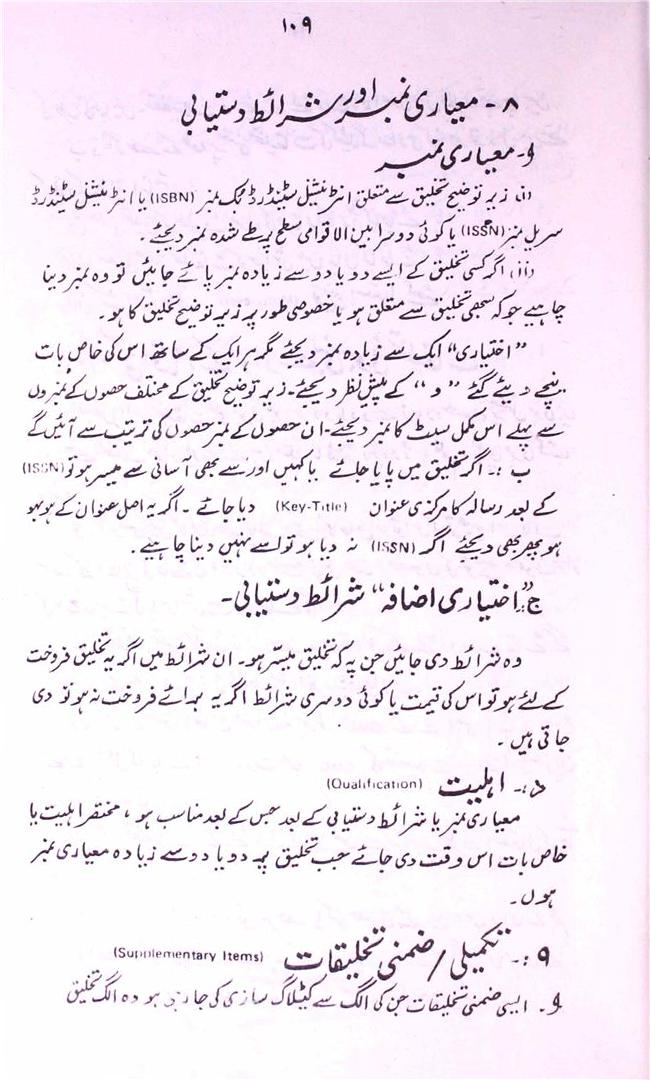 ۱۰۹
۸- معیاری نمبر اور شرائط دستیابی
و- معیاری نمبر
(i) زیر توضیح تخلیق سے متعلق انٹرنیشنل سٹینڈرڈ بک نمبر (ISBN) یا انٹرنیشنل سٹینڈرڈ
سریل نمبر (ISSN) یا کوئی دوسرا بین الاقوامی سطح پر طے شدہ نمبر دیجئے۔
(ii) اگر کسی تخلیق کے ایسے دو یا دو سے زیادہ نمبر پائے جائیں تو وہ نمبر دینا
چاہیے جو کہ سبھی تخلیق سے متعلق ہو یا خصوصی طور پر زیر توضیح تخلیق کا ہو۔
”اختیاری“ ایک سے زیادہ نمبر دیجئے مگر ہر ایک کے ساتھ اس کی خاص بات
نیچے دیئے گئے ”و“ کے پیش نظر دیجئے۔ زیر توضیح تخلیق کے مختلف حصوں کے نمبروں
سے پہلے اس مکمل سیٹ کا نمبر دیجئے۔ ان حصوں کے نمبر حصوں کی ترتیب سے آئیں گے
ب :۔ اگر تخلیق میں پایا جائے یا کہیں اور سے بھی آسانی سے میسر ہو تو (ISSN)
کے بعد رسالہ کا مرکزی عنوان (Key-Title) دیا جائے ۔ اگر یہ اصل عنوان کے ہو بہو
ہو پھر بھی دیجئے اگر (ISSN) نہ دیا ہو تو اسے نہیں دینا چاہیے۔
ج ”اختیاری اضافہ“ شرائط دستیابی۔
وہ شرائط دی جائیں جن پہ کہ تخلیق میسّر ہو۔ ان شرائط میں اگر یہ تخلیق فروخت
کے لئے ہو تو اس کی قیمت یا کوئی دوسری شرائط اگر یہ برائے فروخت نہ ہو تو دی
جاتی ہیں ۔
د:۔ اہلیت (Qualification)
معیاری نمبر یا شرائط دستیابی کے بعد جس کے بعد مناسب ہو ، مختصر اہلیت یا
خاص بات اس وقت دی جائے جب تخلیق پہ دو یا دو سے زیادہ معیاری نمبر
ہوں۔
۹ :۔ تکمیلی / ضمنی تخلیقات (Supplementary Items)
و۔ ایسی ضمنی تخلیقات جن کی الگ سے کیٹلاگ سازی کی جا رہی ہو وہ الگ تخلیق